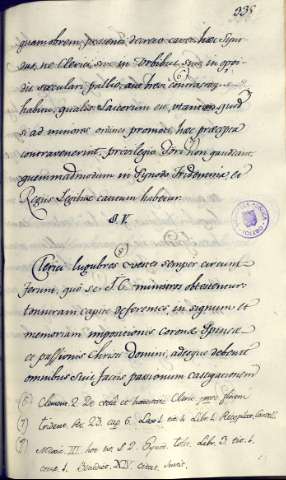 235
quamobrem, presenti decreto cavet hæc Sino-
dus, ne Clerici, sive in Vrbibus, sive in opi-
dis sæculari, pallio, aut breviori
habitu, qualis Laicorum est, utantur, quod
si ad minores ordines promoti, hæc præcepta
contravenerint, privilegio fori non gaudeant,
quemadmodum in Synodo Tridentina, et
Regiis Legibus cautum habetur.
§. V.
Clerici lugubres vestes semper circum
ferunt, quo se I. C. ministros obtestentur
tonsuram capite deferentes in signum, et
memoriam impositionis coronæ Spineæ
et passionis Christi Domini, adeoque debent
omnibus suis factis passionum castigationem
(6) Clement. 2. De vita et honestate Cleric.
(7) Trident. Ses. 23. cap. 6. Ley 1. tit. 4. Libr. 1. Recopilac.
(8) Tolet. Libr. 3. tit. 1.
const. 1. Benedict. XIV.